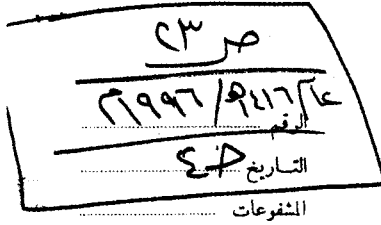 ص ٢٣
عام ١٤١٦هـ / ١٩٩٦م
الرقم
التاريخ ط٤
المشفوعات